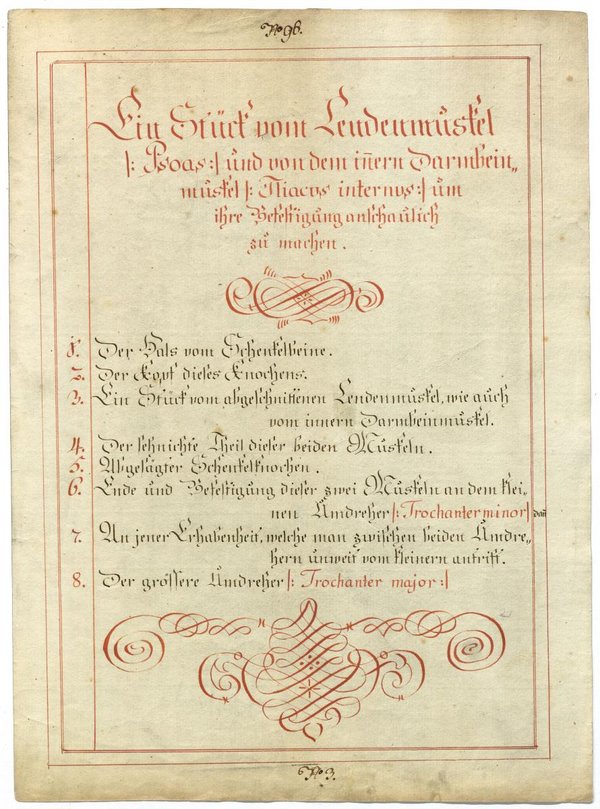 No 96.
Ein Stück vom Lendenmuskel
|: Psoas :| und von dem iñern Darmbein„
muskel |: Iliacus internus :| um
ihre Befestigung anschaulich
zu machen.
1. Der Hals vom Schenkelbeine.
2. Der Kopf dieses Knochens.
3. Ein Stück vom abgeschnittenen Lendenmuskel, wie auch
vom innern Darmbeinmuskel.
4. Der sehnichte Theil dieser beiden Muskeln.
5. Abgesägter Schenkelknochen.
6. Ende und Befestigung dieser zwei Muskeln an dem klei-
nen Umdreher |: Trochanter minor :| dañ
7. An jener Erhabenheit, welche man zwischen beiden Umdre-
hern unweit vom kleinern antrift.
8. Der grössere Umdreher |: Trochanter major :|
No 3.